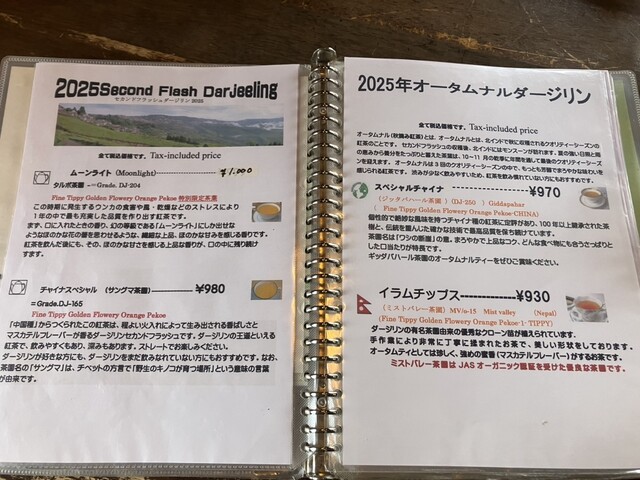 2025Second Flash Darjeeling
セカンドフラッシュダージリン 2025
全て税込価格です。 Tax-included price
ムーンライト (Moonlight) ¥1.000
タルボ茶園 -=Grade. DJ-204
Fine Tippy Golden Flowery Orange Pekoe 特別限定茶葉
この時期に発生するウンカの食害や風・乾燥などのストレスにより
1年の中で最も充実した品質を作り出す紅茶です。
まず、口に入れたときの香り、幻の等級である「ムーンライト」にしか出せな
いようなほのかな花の香を思わせるような、繊細な上品、ほのかな甘みを感じる香りです。
紅茶を飲んだ後にも、その、ほのかな甘さを感じる上品な香りが、口の中に残り続け
ます。
チャイナスペシャル (サングマ茶園) ¥980
=Grade.DJ-165
Fine Tippy Golden Flowery Orange Pekoe
「中国種」からつくられたこの紅茶は、程よい火入れによって生み出される香ばしさと
マスカテルフレーバーが香るダージリンセカンドフラッシュです。ダージリンの王道といえる
紅茶で、飲みやすくもあり、深みもあります。ストレートでお楽しみください。
ダージリンが好きな方にも、ダージリンをまだ飲みなれていない方にもおすすめです。なお、
茶園名の「サングマ」は、チベットの方言で「野生のキノコが育つ場所」という意味の言葉
が由来です。
2025年オータムナルダージリン
全て税込価格です。 Tax-included price
オータムナル(秋摘み紅茶)とは、オータムナルとは、北インドで秋に収穫されるクオリティーシーズンの
紅茶のことです。 セカンドフラッシュの収穫後、北インドにはモンスーンが訪れます。夏の強い日差しと雨
の恵みから養分をたっぷりと蓄えた茶葉は、10～11月の乾季に年間を通して最後のクオリティーシーズン
を迎えます。 オータムナルは3回のクオリティーシーズンの中で、もっとも芳醇でまろやかな味わいを
感じられる紅茶です。 渋みが少なく飲みやすいため、紅茶を飲み慣れていない方にもおすすめです。
スペシャルチャイナ ----------------- ¥970
(ジッダパハール茶園) (DJ-250 ) Giddapahar
( Fine Tippy Golden Flowery Orange Pekoe-CHINA)
個性的で絶妙な風味を持つチャイナ種の紅茶に定評があり、100年以上継承された茶
樹と、伝統を重んじた確かな技術で最高品質を保ち続けています。
茶園名は「ワシの断崖」の意。まろやかで上品なコク、どんな食べ物にも合うさっぱりと
した口当たりが特長です。
ギッダパハール茶園のオータムナルティーをぜひご賞味ください。
イラムチップス-------------¥930
(ミストバレー茶園) MV/o-15 Mist valley (Nepal)
(Fine Tippy Golden Flowery Orange Pekoe-1- TIPPY)
ダージリンの有名茶園由来の優秀なクローン苗が植えられています。
手作業により非常に丁寧に揉まれたお茶で、美しい形状をしております。
オータムティとしては珍しく、強めの蜜香(マスカテルフレーバー)がするお茶です。
ミストバレー茶園は JAS オーガニック認証を受けた優良な茶園です。